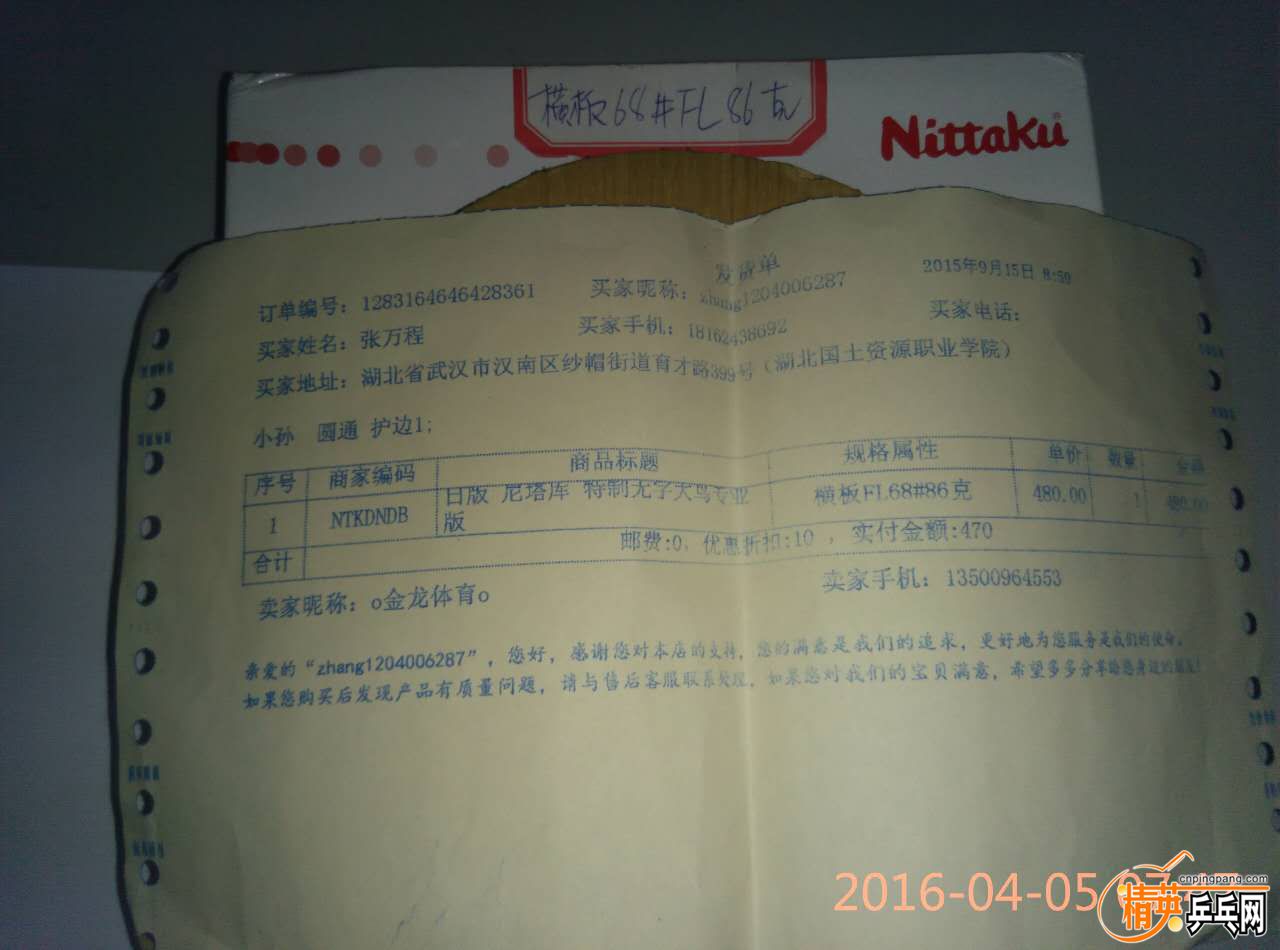 横板68#FL 86克
Nittaku
发货单
2015年9月15日 8:59
订单编号：1283164646428361 买家昵称：zhang1204006287
买家姓名：张万程 买家手机：18162438692 买家电话：
买家地址：湖北省武汉市汉南区纱帽街道育才路399号（湖北国土资源职业学院）
小孙 圆通 护边1;
序号 商家编码 商品标题 规格属性 单价 数量 金额
1 NTKDNDB 日版 尼塔库 特制无字大鸟专业版 横板FL68#86克 480.00 1 480.00
合计 邮费:0, 优惠折扣:10 , 实付金额:470
卖家昵称：o金龙体育o 卖家手机：13500964553
亲爱的“zhang1204006287”，您好，感谢您对本店的支持，您的满意是我们的追求，更好地为您服务是我们的使命。
如果您购买后发现产品有质量问题，请与售后客服联系处理，如果您对我们的宝贝满意，希望多多分享给您身边的朋友！
2016-04-05
cnpingpang.com
精英乒乓网